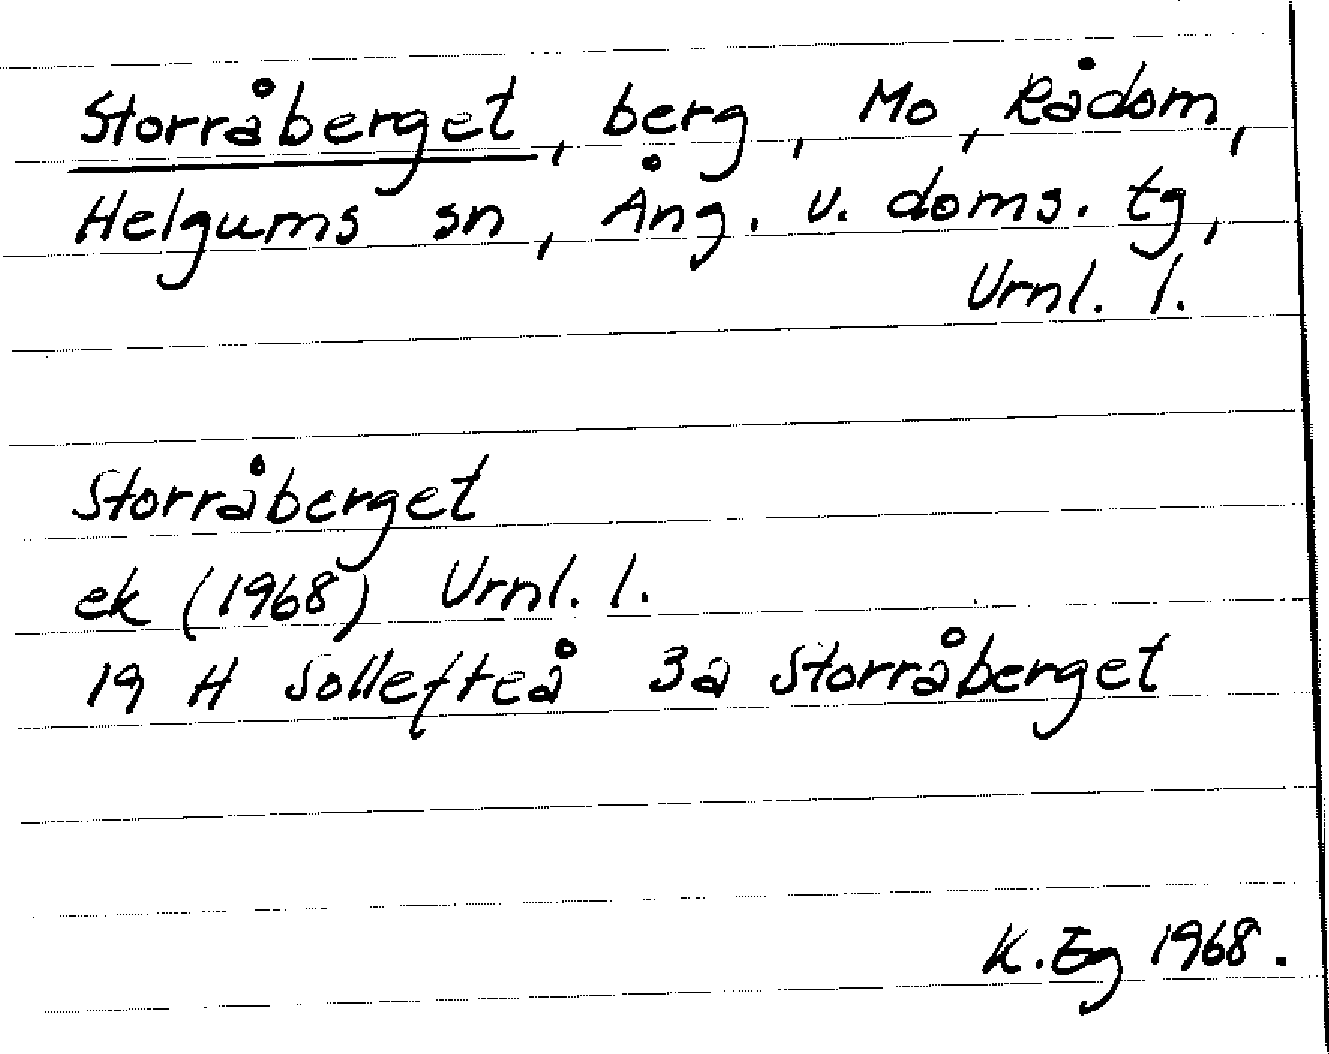 Storråberget, berg, Mo, Rådom,
Helgums sn, Ång. v. doms. tg,
Urnl. l.
Storråberget
ek (1968) Urnl. l.
19 H Sollefteå 3a Storråberget
K. Eg 1968.